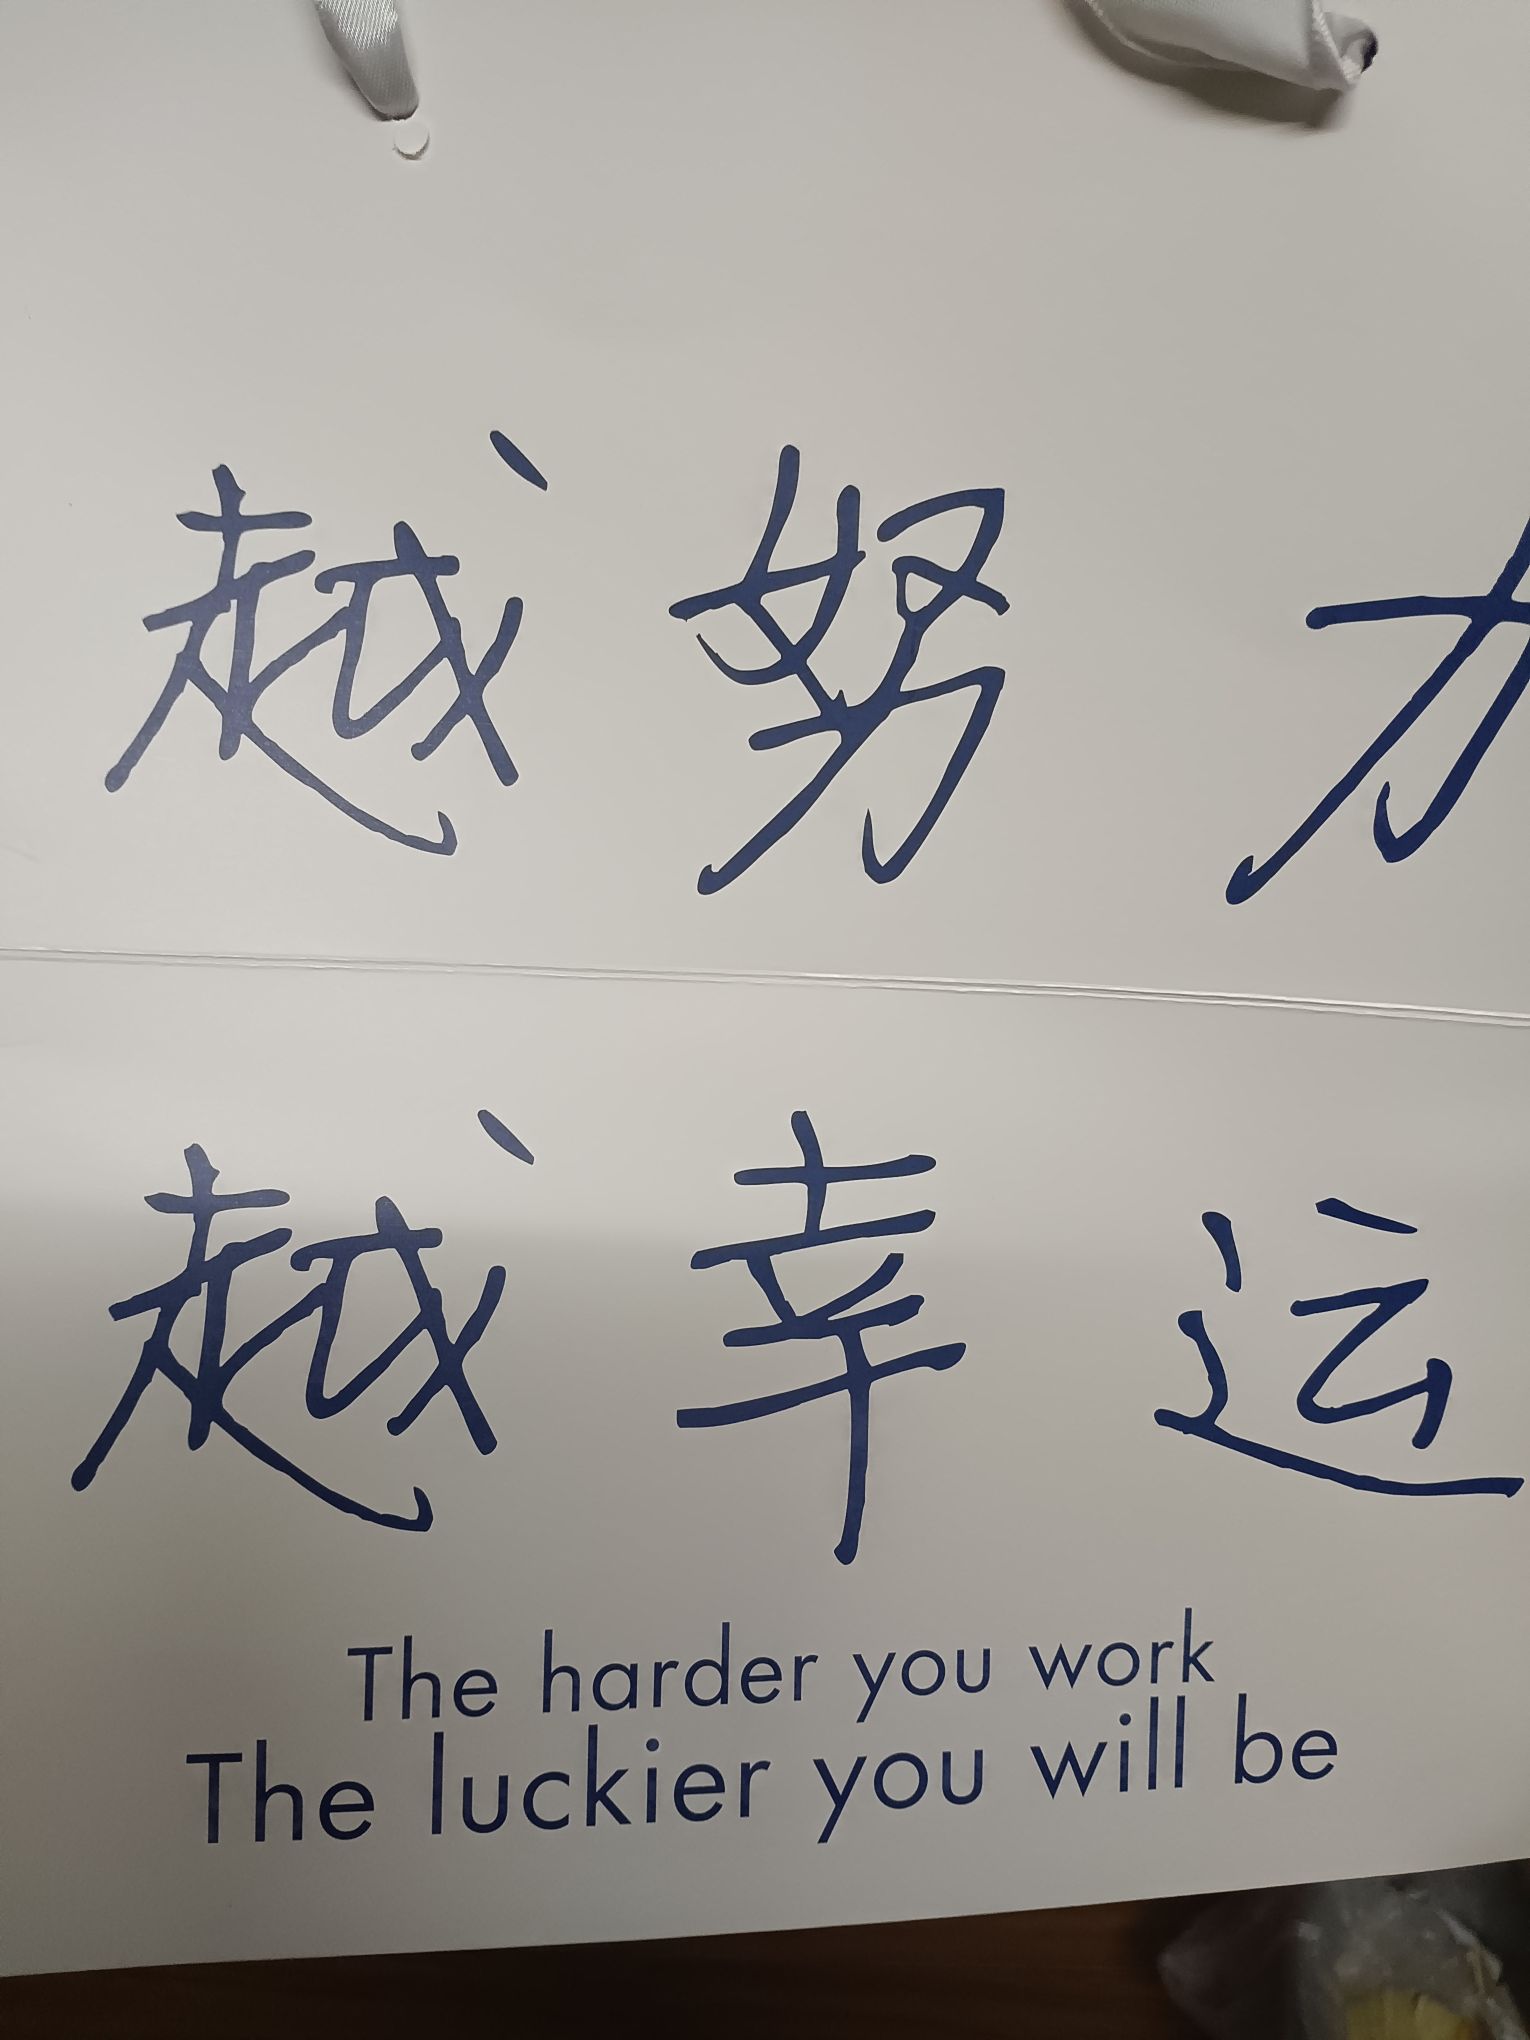 越努力
越幸运
The harder you work
The luckier you will be